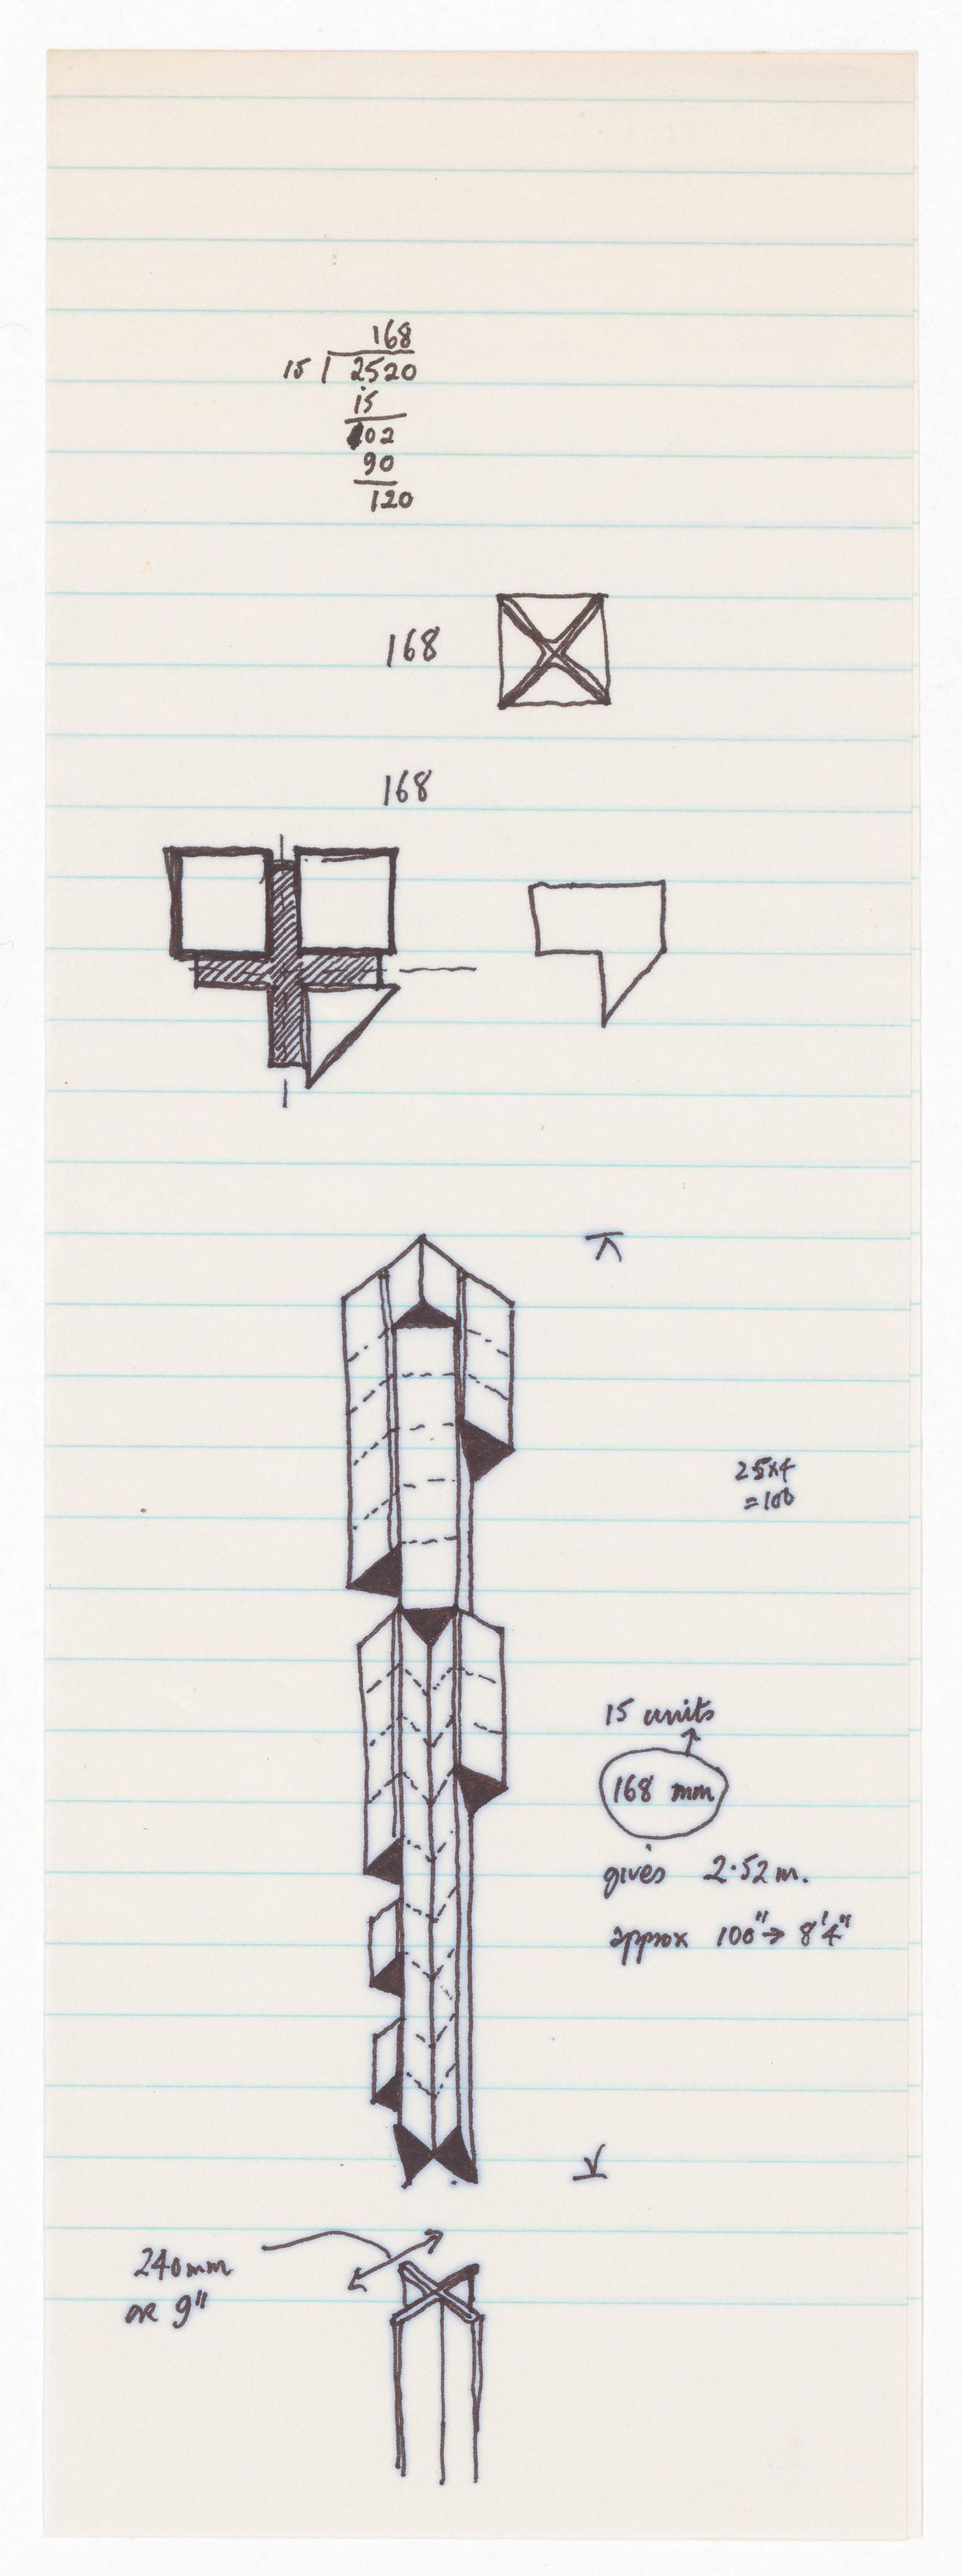 168
15 2520
15
102
90
120
168
168
25x4
=100
15 units
168 mm
gives 2.52 m.
approx 100" → 8'4"
240mm
or 9"